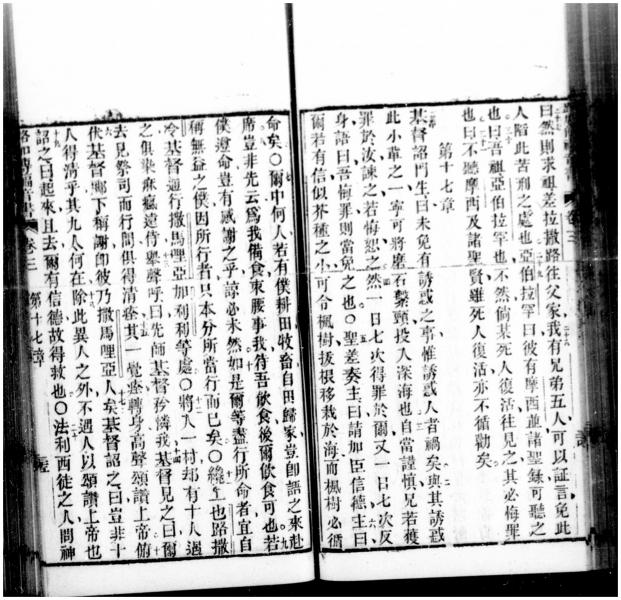 曰然則求祖差拉撒路往父家我有兄弟五人可以証言免此
人陷此苦刑之處也亞伯拉罕曰彼有摩西並諸聖錄可聽之
也曰吾祖亞伯拉罕也不然倘某死人復活往見之其必悔罪
也曰不聽摩西及諸聖賢雖死人復活亦不循勸矣
第十七章
基督詔門生曰未免有誘惑之事惟誘惑人者禍矣與其誘惑
此小輩之一寧可將磨石繫頸投入深海也自當謹慎兄若獲
罪於汝諫之若悔恕之然一日七次得罪於爾又一日七次反
身語曰吾悔罪則當免之也〇聖差奏主曰請加臣信德主曰
爾若有信似芥種之小可令楓樹拔根移栽於海而楓樹必循
命矣〇爾中何人若有僕耕田牧畜自田歸家豈即語之來赴
席豈非先云為我備食束腰事我待吾飲食後爾飲食可也若
僕遵命豈有感謝之乎諒必未然如是爾等盡行所命者宜自
稱無益之僕因所行者只本分所當行而已矣〇也路撒
冷基督通行撒馬哩亞加利利等處〇將入一村却有十人遇
之俱染痳瘋遠侍舉聲呼曰先師基督矜憐我基督見之曰爾
去見祭司而行間俱得清痊其一覺痊轉身高聲頌讚上帝俯
伏基督鄉下稱謝即彼乃撒馬哩亞人矣基督詔之曰豈非十
人得清乎其九人何在除此異人之外不遇人以頌讚上帝也
詔之曰起來且去爾有信德故得救也〇法利西徒之人問神
卷三 第十七章